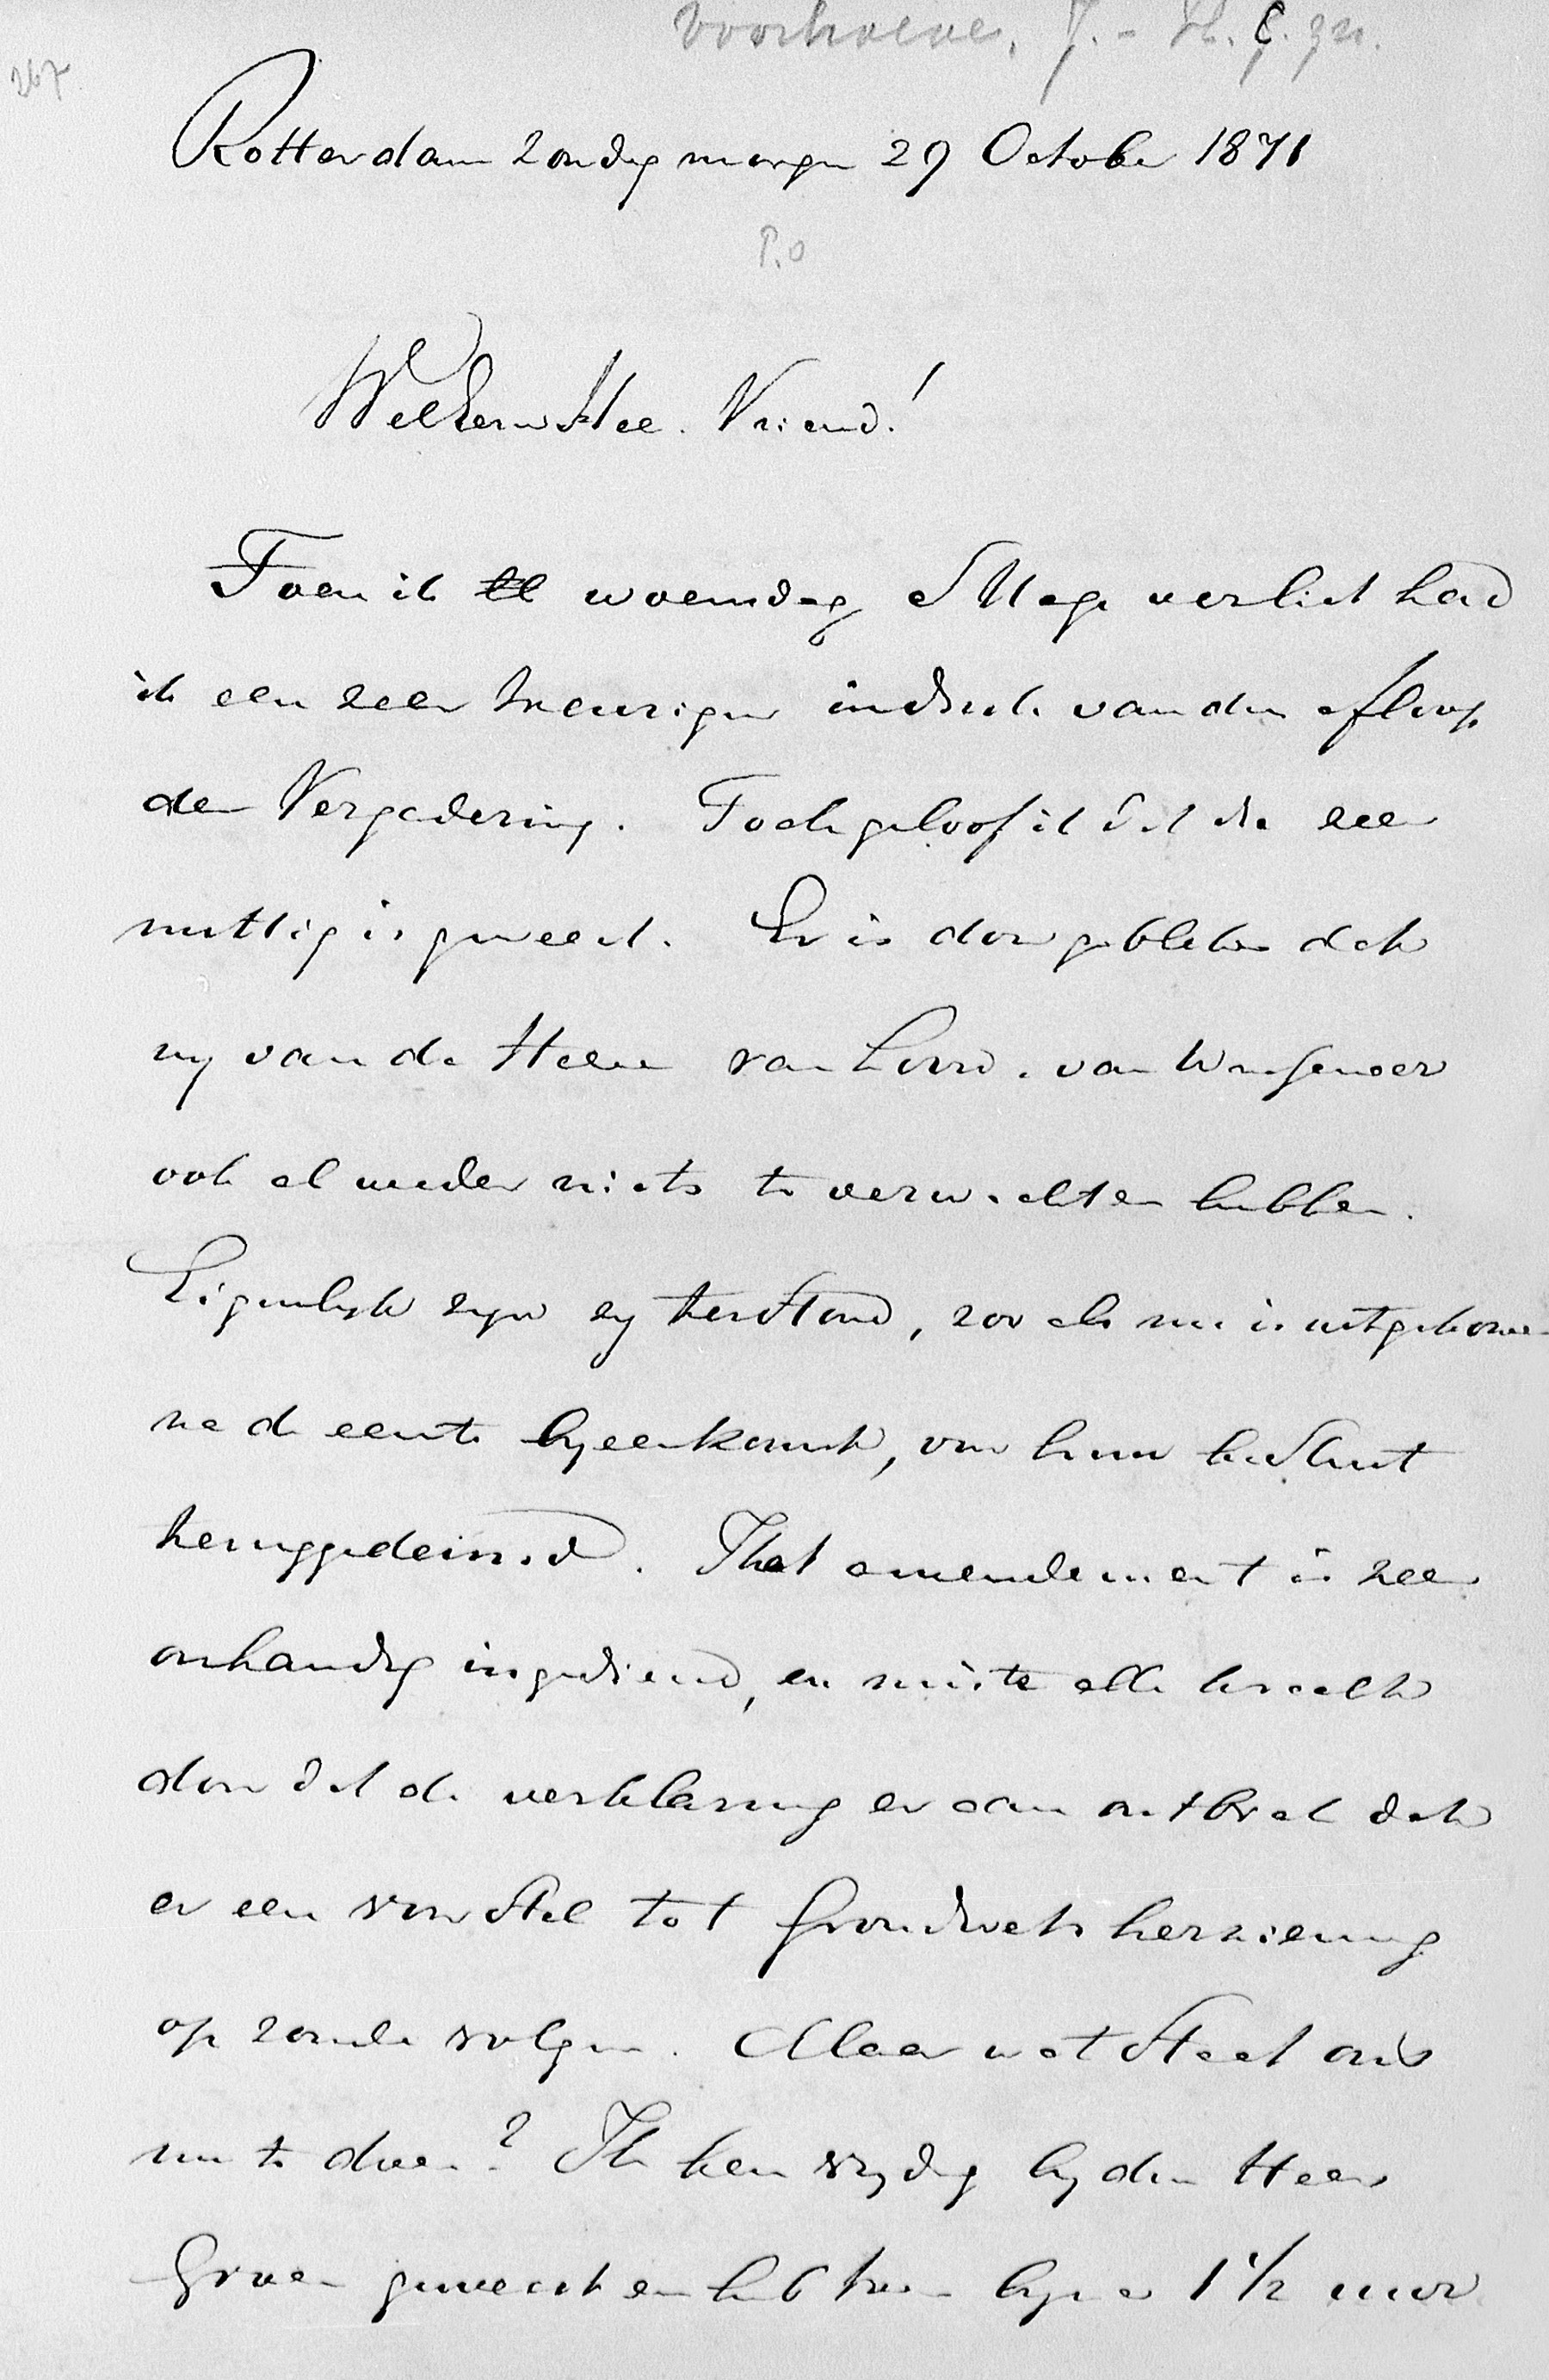 Voorhoeve, J. - H. C. zn.
267
Rotterdam Zondag morgen 29 October 1871
P.O
WelEerw Heer. Vriend!
Toen ik woensdag s'Hage verliet had
ik een zeer treurigen indruk van den afloop
der Vergadering. Toch geloof ik dat die zeer
nuttig is geweest. Er is door gebleken dat
wy van de Heeren van Loon. van Wassenaer
ook al weder niets te verwachten hebben.
Eigenlyk zyn zy terstond, zoo als nu is uitgekomen
na de eerste byeenkomst, van hun besluit
teruggedeinsd. Het amendement is zeer
onhandig ingediend, en miste alle kracht
door dat de verklaring er aan ontbrak dat
er een voorstel tot Grondwetsherziening
op zoude volgen. Maar wat staat ons
nu te doen? Ik ben vrydag by den Heer
Groen geweest en heb hem byna 1 1/2 uur